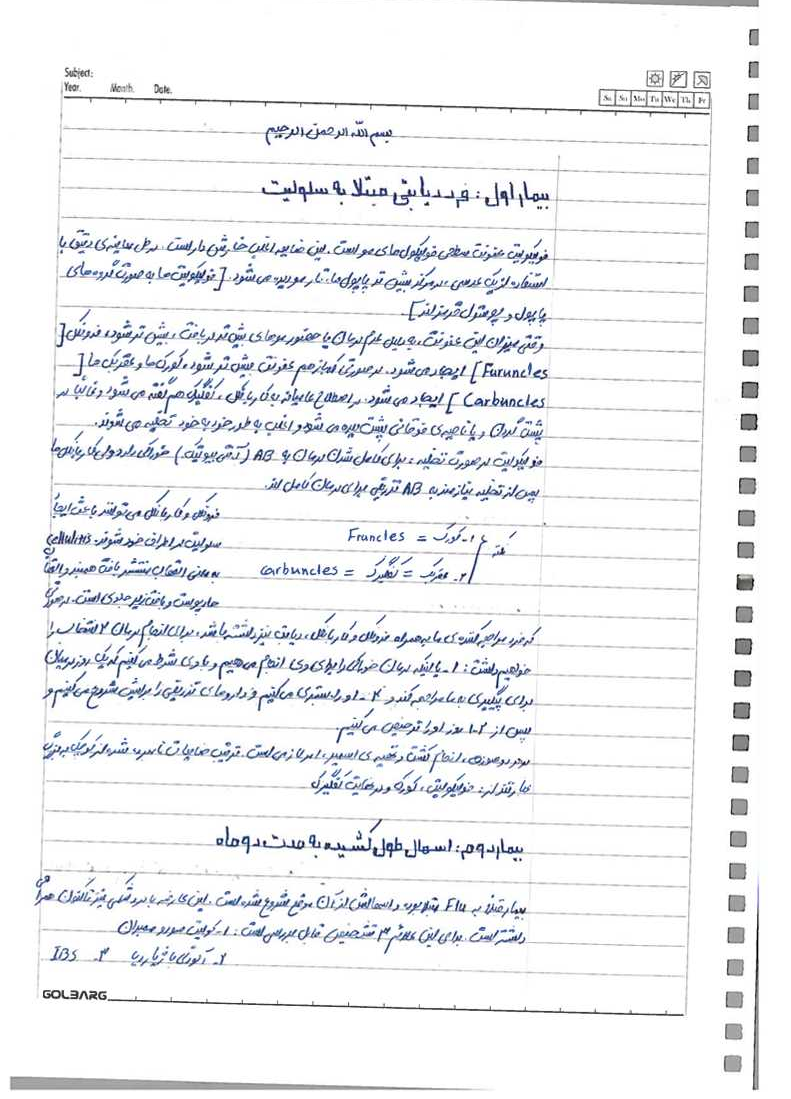 Subject:
Year. Month. Date.
Sa Su Mo Tu We Th Fr
بسم الله الرحمن الرحیم
بیمار اول: فرد دیابتی مبتلا به سلولیت
فولیکولیت عفونت سطحی فولیکول‌های مو است. این ضایعه اغلب خارش دار است. در طی معاینه‌ی دقیق با
استفاده از یک عدسی، در مرکز بیش تر پاپول ها، تار مو دیده می شود. [فولیکولیت ها به صورت گروه های
پاپول و پوستول قرمزاند].
وقتی میزان این عفونت، به دلیل عدم درمان یا حضور موهای بیش تر در بافت، بیش تر شود، فرونکل [
Furuncles] ایجاد می شود. در صورتی که باز هم عفونت بیش تر شود، کورک ها و عقربک ها [
Carbuncles] ایجاد می شود. در اصطلاح عامیانه به کاربانکل، کفگیرک هم گفته می شود و غالبا در
پشت گردن و یا ناحیه ی فوقانی پشت دیده می شود و اغلب به طور خود به خود تخلیه می شوند.
فولیکولیت در صورت تخلیه، برای کامل شدن درمان به AB (آنتی بیوتیک) خوراکی دارد ولی کاربانکل ها
پس از تخلیه نیازمند به AB تزریقی برای درمان کامل اند.
فرونکل و کاربانکل می توانند باعث ایجاد
نکته ۱- کورک = Fruncles
سلولیت در اطراف خود شوند. Cellulitis
۲- عقربک = کفگیرک = Carbuncles
به معنی التهاب منتشر بافت همبند و التهاب
حاد پوست و بافت زیر جلدی است. در صورتی
که فرد مراجعه کننده ی ما به همراه فرونکل و کاربانکل، دیابت نیز داشته باشد، برای انجام درمان ۲ انتخاب را
خواهیم داشت: ۱- یا اینکه درمان خوراکی را برای وی انجام می دهیم و با وی شرط می کنیم که یک روز در میان
برای پیگیری به ما مراجعه کند و ۲- او را بستری می کنیم و داروهای تزریقی را برایش شروع می کنیم و
پس از ۱-۲ روز او را ترخیص می کنیم.
در هر دو صورت، انجام کشت و تهیه ی اسمیر، امر لازمی است. ترتیب ضایعات نامبرده شده از کوچک به بزرگ
عبارتند از: فولیکولیت، کورک و در نهایت کفگیرک
بیمار دوم: اسهال طول کشیده به مدت دو ماه
بیمار قبلا به Flu مبتلا بوده و اسهالش از آن موقع شروع شده است. این عارضه با درد شکمی نیز تاکنون همراهی
داشته است. برای این علائم ۳ تشخیص قابل بررسی است: ۱- کولیت سودوممبران
۲- آلودگی با ژیاردیا ۳- IBS
GOLBARG